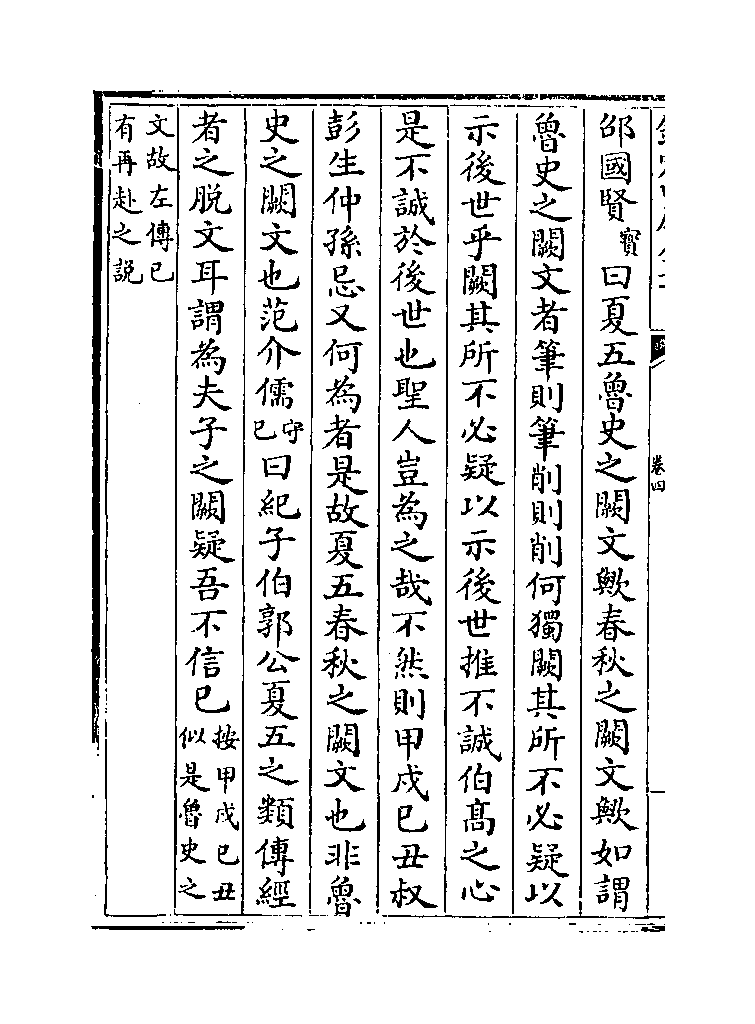 邵國賢寳曰夏五魯史之闕文歟春秋之闕文歟如謂
魯史之闕文者筆則筆削則削何獨闕其所不必疑以
示後世乎闕其所不必疑以示後世推不誠伯髙之心
是不誠於後世也聖人豈為之哉不然則甲戍已丑叔
彭生仲孫忌又何為者是故夏五春秋之闕文也非魯
史之闕文也范介儒守已曰紀子伯郭公夏五之類傳經
者之脱文耳謂為夫子之闕疑吾不信已按甲戍已丑
似是魯史之
文故左傳已
有再赴之説
卷四